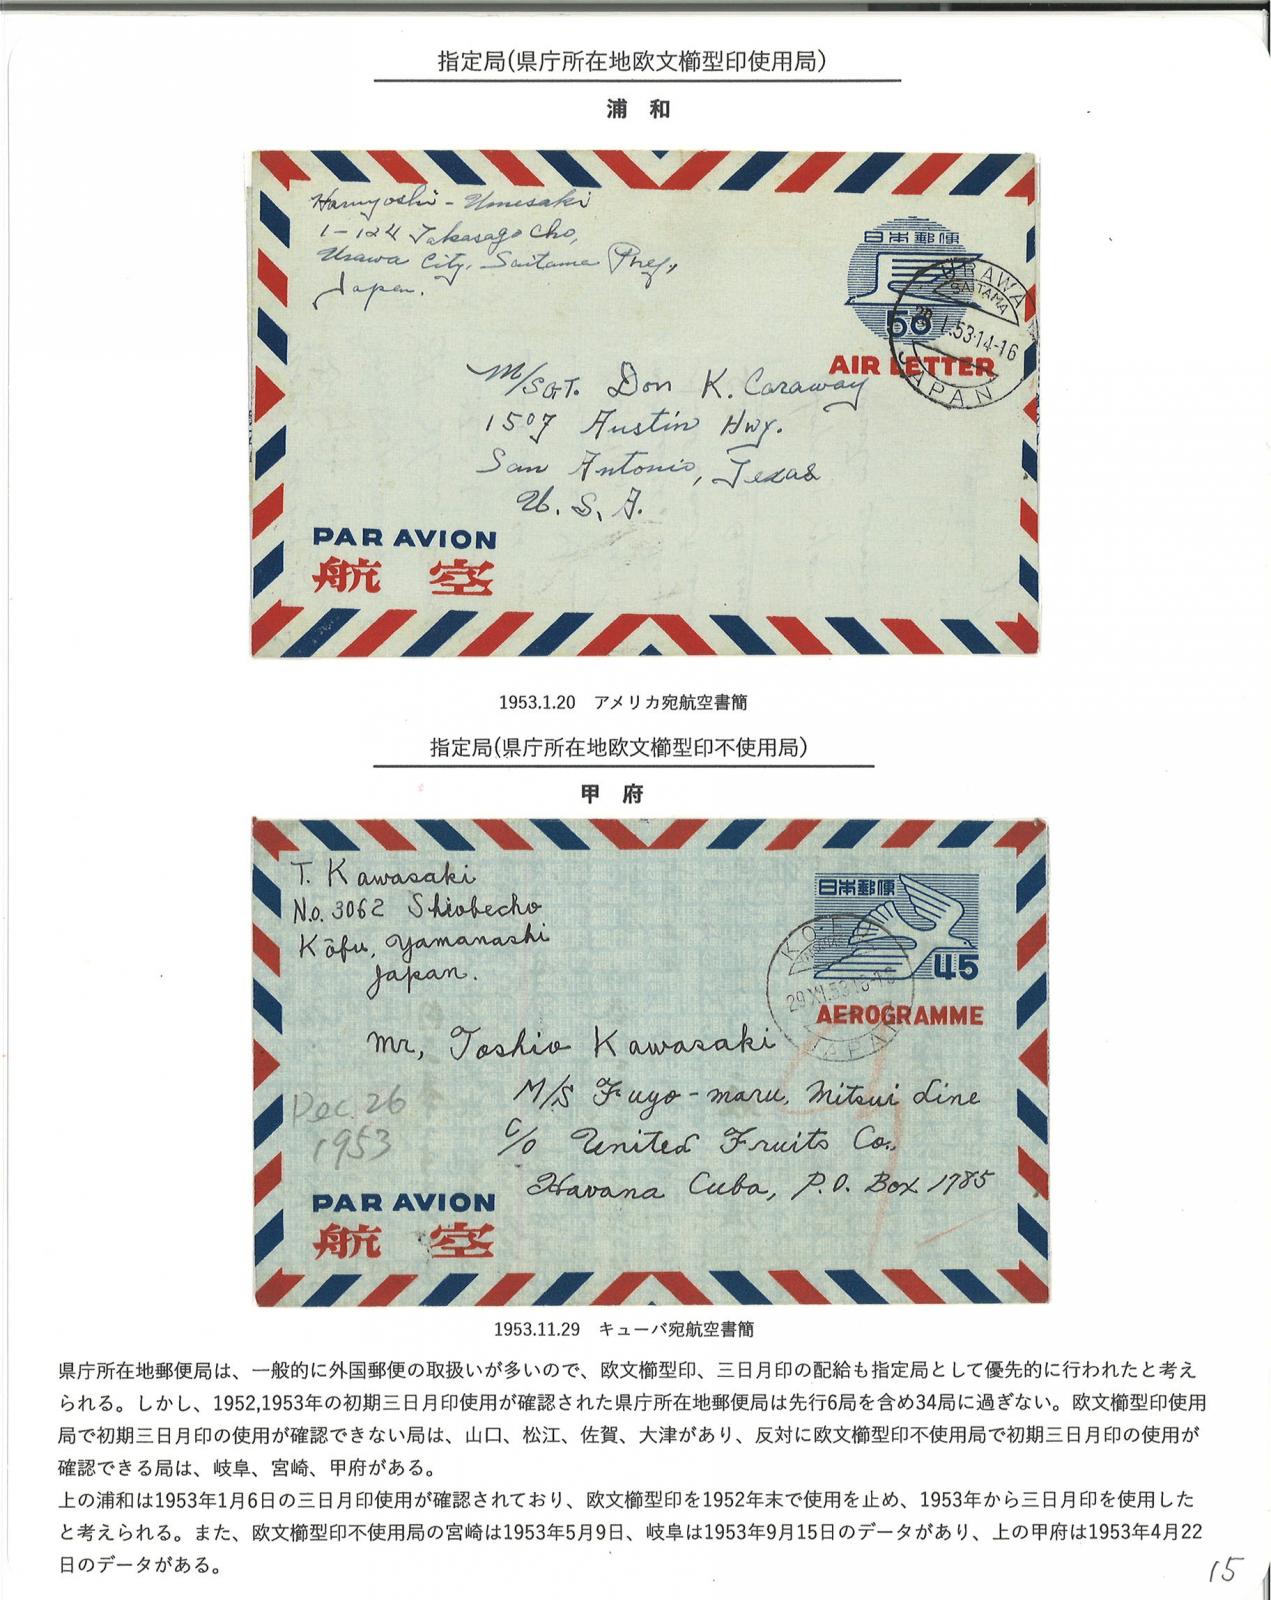 指定局(県庁所在地欧文櫛型印使用局)
浦 和
Haruyoshi - Umesaki
1-124 Takasago cho,
Urawa City, Saitama Pref,
Japan.
日本郵便
50
AIR LETTER
URAWA
SAITAMA
I.53.14-16
JAPAN
M/SGT. Don K. Caraway
1507 Austin Hwy.
San Antonio, Texas
U. S. A.
PAR AVION
航 空
1953.1.20 アメリカ宛航空書簡
指定局(県庁所在地欧文櫛型印不使用局)
甲 府
T. Kawasaki
No. 3062 Shiobecho
Kōfu, Yamanashi
Japan.
日本郵便
45
AEROGRAMME
KO-FU
29.XI.53
JAPAN
Mr, Toshio Kawasaki
M/S Fuyo-maru, Mitsui Line
c/o United Fruits Co.,
Havana Cuba, P.O. Box 1985
Dec. 26
1953
PAR AVION
航 空
1953.11.29 キューバ宛航空書簡
県庁所在地郵便局は、一般的に外国郵便の取扱いが多いので、欧文櫛型印、三日月印の配給も指定局として優先的に行われたと考え
られる。しかし、1952,1953年の初期三日月印使用が確認された県庁所在地郵便局は先行6局を含め34局に過ぎない。欧文櫛型印使用
局で初期三日月印の使用が確認できない局は、山口、松江、佐賀、大津があり、反対に欧文櫛型印不使用局で初期三日月印の使用が
確認できる局は、岐阜、宮崎、甲府がある。
上の浦和は1953年1月6日の三日月印使用が確認されており、欧文櫛型印を1952年末で使用を止め、1953年から三日月印を使用した
と考えられる。また、欧文櫛型印不使用局の宮崎は1953年5月9日、岐阜は1953年9月15日のデータがあり、上の甲府は1953年4月22
日のデータがある。
15